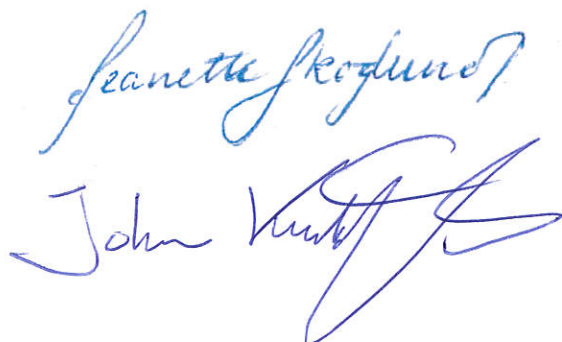 Jeanette Skoglund
John